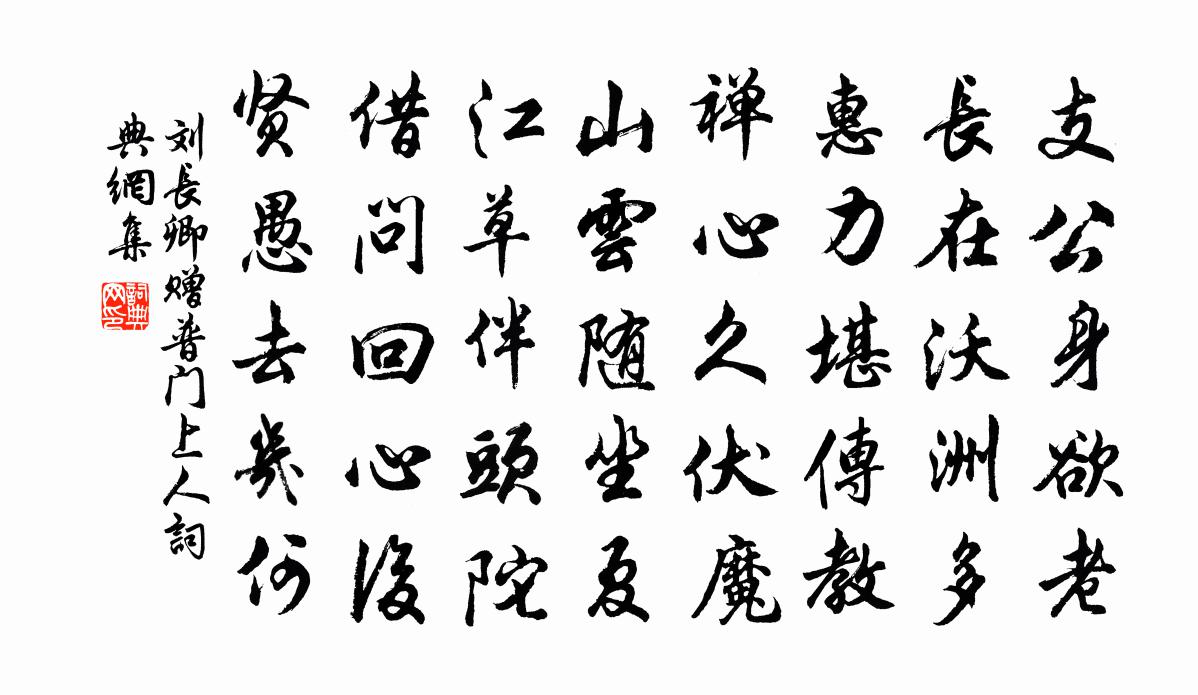 支公身欲老
長在沃洲多
惠力堪傳教
禅心久伏魔
山雲随坐夏
江草伴頭陀
借问回心後
贤愚去幾何
刘長卿赠普门上人詞
典網集
詞典
网印